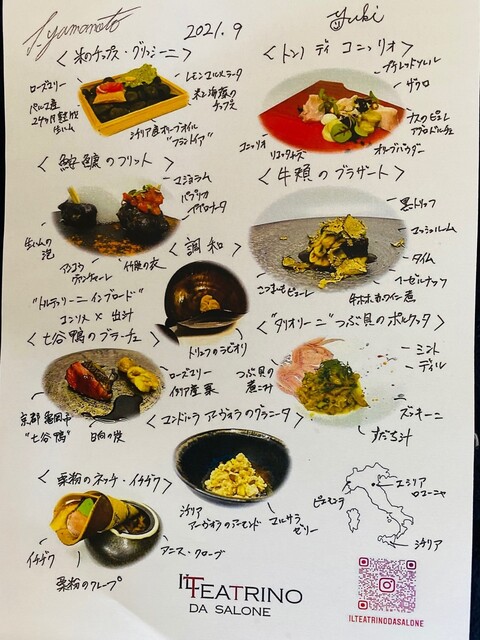 J. yamamoto
2021.9
yuki
<米のチップス・グリッシーニ>
ローズマリー
パルマ産
24ヶ月熟成
生ハム
レモンマルメラータ
米と海藻の
チップス
シチリア産オリーブオイル
<トンノ ディ コニッリオ>
ザクロ
ナスのピュレ
オリーブパウダー
リコッタチーズ
コニッリオ
<鮟鱇のフリット>
マジョラム
パプリカ
ペペロナータ
生ハムの
泡
アンコウ
グアンチャーレ
竹炭の衣
<牛頬のブラザート>
黒トリュフ
マッシュルーム
タイム
ヘーゼルナッツ
牛ホホ赤ワイン煮
さつまいもピューレ
<調和>
"トルテッリーニ イン ブロード"
コンソメ × 出汁
トリュフのラビオリ
<七谷鴨のブラーチェ>
ローズマリー
イタリア産栗
京都 亀岡市
"七谷鴨"
日向の炭
<"タリオリーニ"つぶ貝のポルケッタ>
つぶ貝の
煮こみ
ミント
ディル
ズッキーニ
すだち汁
<マンドルラ アーヴォラのグラニータ>
シチリア
アーヴォラのアーモンド
マルサラ
ゼリー
<栗粉のネッチ・イチヂク>
イチヂク
栗粉のクレープ
アニス・クローブ
ピエモンテ
エミリア
ロマーニャ
シチリア
IL TEATRINO
DA SALONE
ILTEATRINODASALONE